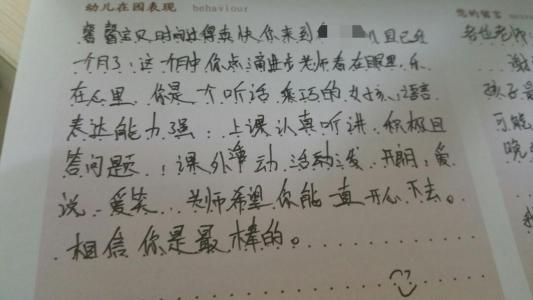 幼儿在园表现 behaviour
您的留言
馨馨宝贝时间过得真快你来到 几且已经
各位老师:
一个月了:这一个月中你点滴进步老师看在眼里.乐
谢
在心里.你是一个听话乖巧的女孩:语言
孩子最
表达能力强:上课认真听讲.积极回
可能
答问题:课外活动活泼.开朗:爱
晚
说.爱笑..老师希望你能一直开心下去。
相信你是最棒的。